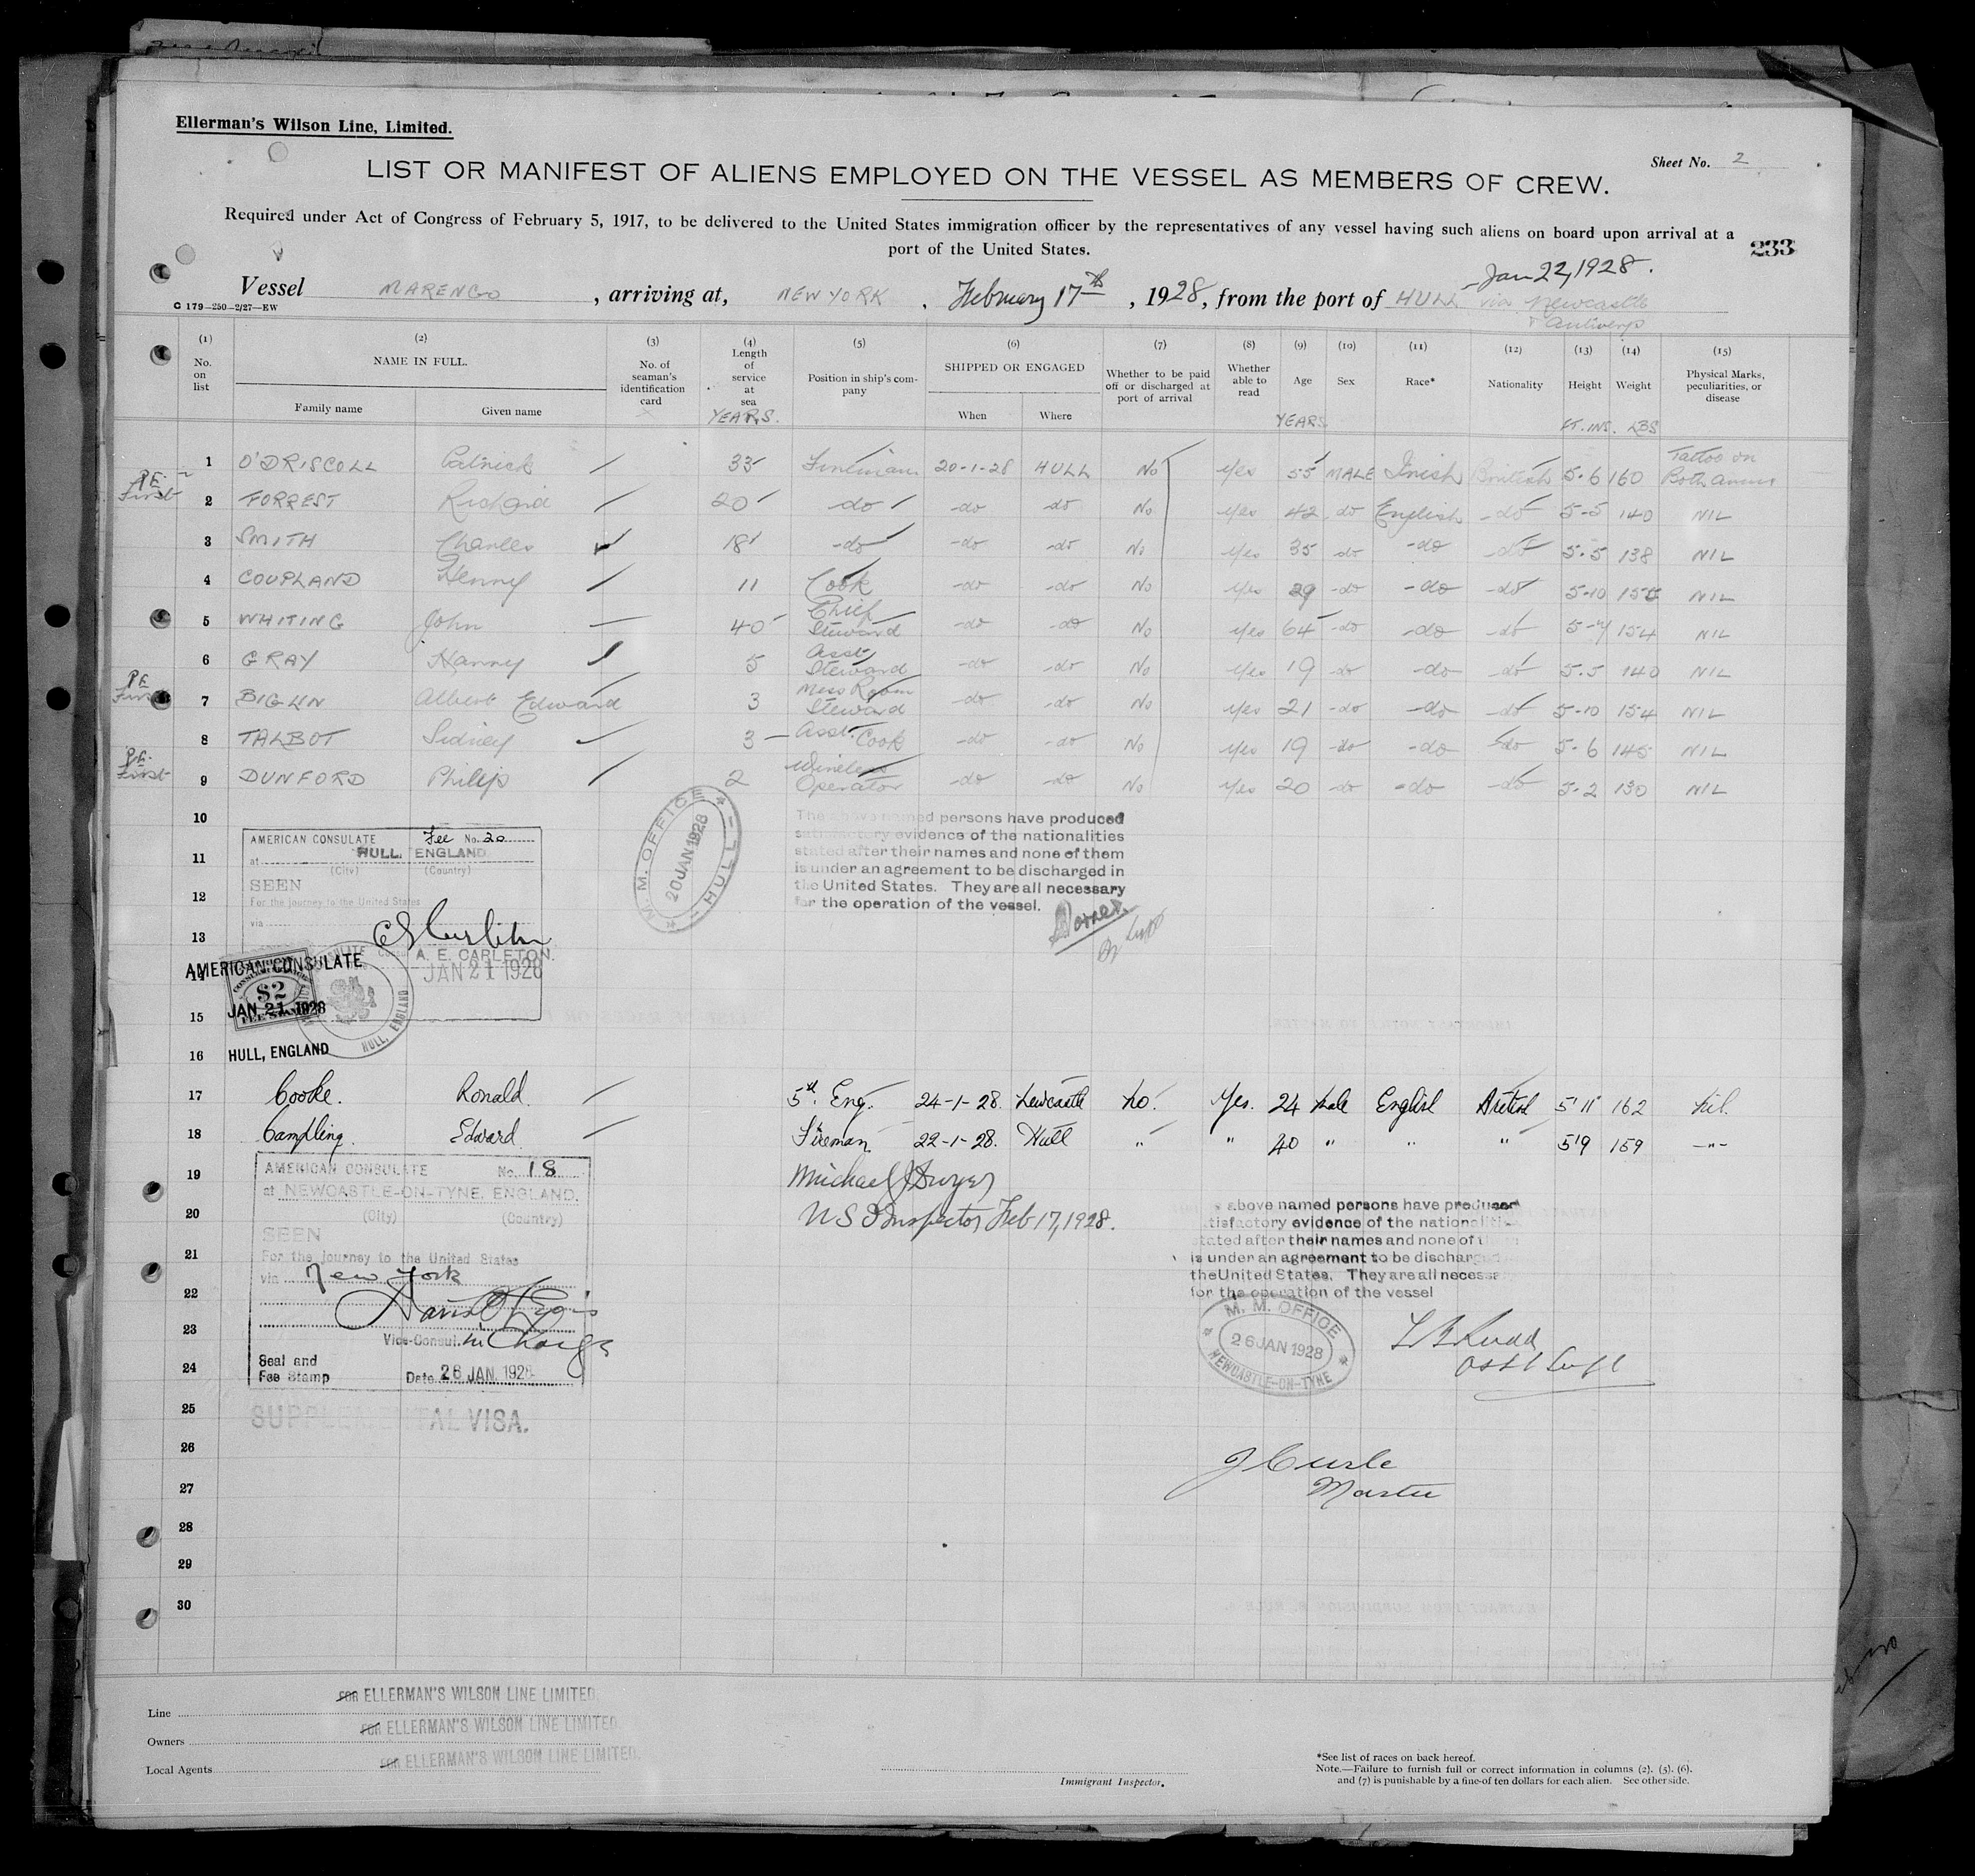 Ellerman's Wilson Line, Limited.
Sheet No. 2
LIST OR MANIFEST OF ALIENS EMPLOYED ON THE VESSEL AS MEMBERS OF CREW.
Required under Act of Congress of February 5, 1917, to be delivered to the United States immigration officer by the representatives of any vessel having such aliens on board upon arrival at a
port of the United States.
233
Jan 22, 1928.
Vessel MARENGO, arriving at, NEW YORK. February 17th, 1928, from the port of HULL via Newcastle
& Antwerp
C 179—250—2/27—EW
(1) (2) (3) (4) (5) (6) (7) (8) (9) (10) (11) (12) (13) (14) (15)
No. on list
NAME IN FULL.
Family name Given name
No. of seaman's identification card
Length of service at sea
YEARS.
Position in ship's company
SHIPPED OR ENGAGED
When Where
Whether to be paid off or discharged at port of arrival
Whether able to read
Age
YEARS
Sex
Race*
Nationality
Height
FT. INS.
Weight
LBS
Physical Marks, peculiarities, or disease
1 O'DRISCOLL Patrick 33 Fireman 20-1-28 HULL No Yes 55 MALE Irish British 5-6 160 Tattoo on Both arms
P.E. First
2 FORREST Richard 20 do do do No Yes 42 do English do 5-5 140 NIL
3 SMITH Charles 18 do do do No Yes 35 do do do 5-5 138 NIL
4 COUPLAND Henry 11 Cook do do No Yes 29 do do do 5-10 NIL
5 WHITING John 40 Chief Steward do do No Yes 64 do do do 5-7 154 NIL
6 GRAY Harry 5 Asst Steward do do No Yes 19 do do do 5-5 140 NIL
P.E. First
7 BIGLIN Albert Edward 3 Mess Room Steward do do No Yes 21 do do do 5-10 154 NIL
8 TALBOT Sidney 3 Asst. Cook do do No Yes 19 do do do 5-6 145 NIL
P.E. First
9 DUNFORD Philip 2 Wireless Operator do do No Yes 20 do do do 5-2 130 NIL
10
11
12
13
14
15
16
AMERICAN CONSULATE Fee No. 20
at HULL, ENGLAND
(City) (Country)
SEEN
For the journey to the United States
via
A. E. CARLETON.
JAN 21 1928
AMERICAN CONSULATE
$2
FEE STAMP
JAN. 21. 1928
HULL, ENGLAND
M. M. OFFICE
20 JAN 1928
HULL
The above named persons have produced
satisfactory evidence of the nationalities
stated after their names and none of them
is under an agreement to be discharged in
the United States. They are all necessary
for the operation of the vessel.
17 Cooke. Ronald. 5th. Eng. 24-1-28. Newcastle No. Yes. 24 Male English British 5'11" 162 Nil.
18 Campling. Edward. Fireman 22-1-28. Hull " " 40 " " " 5'9 159 -"-
19
20
21
22
23
24
25
26
27
28
29
30
Michael J Dwyer
U S I Inspector Feb 17, 1928.
AMERICAN CONSULATE No. 18
at NEWCASTLE-ON-TYNE, ENGLAND.
(City) (Country)
SEEN
For the journey to the United States
via New York
Vice-Consul in Charge
Seal and
Fee Stamp
Date 26 JAN. 1928
SUPPLEMENTAL VISA.
above named persons have produced
tisfactory evidence of the nationaliti
stated after their names and none of t
is under an agreement to be discharged
the United States. They are all necess
for the operation of the vessel
M. M. OFFICE
26 JAN 1928
NEWCASTLE-ON-TYNE
Asst Supt
J Curle
Master
Line FOR ELLERMAN'S WILSON LINE LIMITED.
Owners FOR ELLERMAN'S WILSON LINE LIMITED.
Local Agents FOR ELLERMAN'S WILSON LINE LIMITED.
Immigrant Inspector.
*See list of races on back hereof.
Note.—Failure to furnish full or correct information in columns (2). (5). (6).
and (7) is punishable by a fine of ten dollars for each alien. See other side.